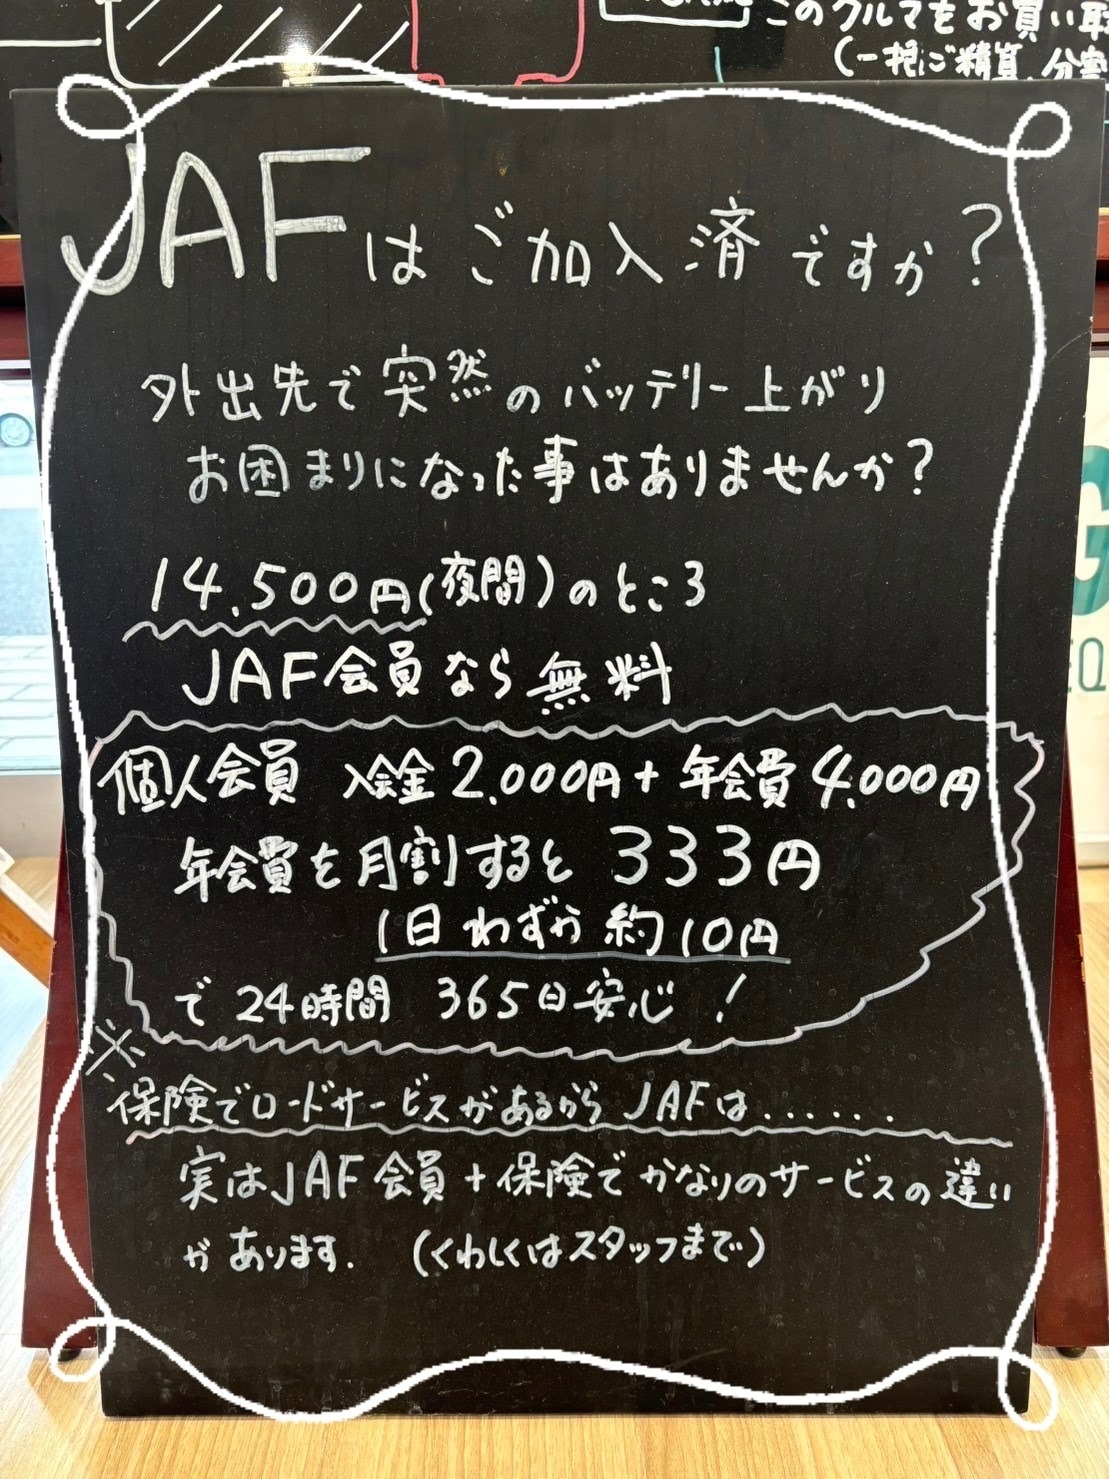 このクルマをお買い取
(一括ご精算、分割
JAFはご加入済ですか?
外出先で突然のバッテリー上がり
お困まりになった事はありませんか?
14.500円(夜間)のところ
JAF会員なら無料
個人会員 入会金2.000円+年会費4.000円
年会費を月割すると 333円
1日わずか 約10円
で 24時間 365日安心!
※
保険でロードサービスがあるから JAFは......
実はJAF会員+保険でかなりのサービスの違い
があります. (くわしくはスタッフまで)
G
EQ